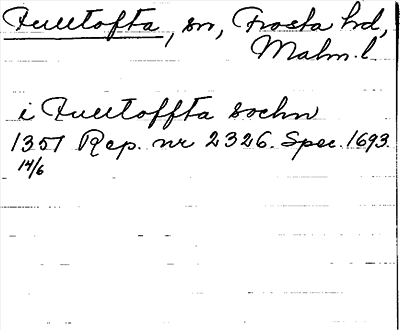 Fulltofta, sn, Frosta hd,
Malm. l.
i Fulltoffta sochn
1357 Rep. nr 2326. Spec. 1693.
14/6